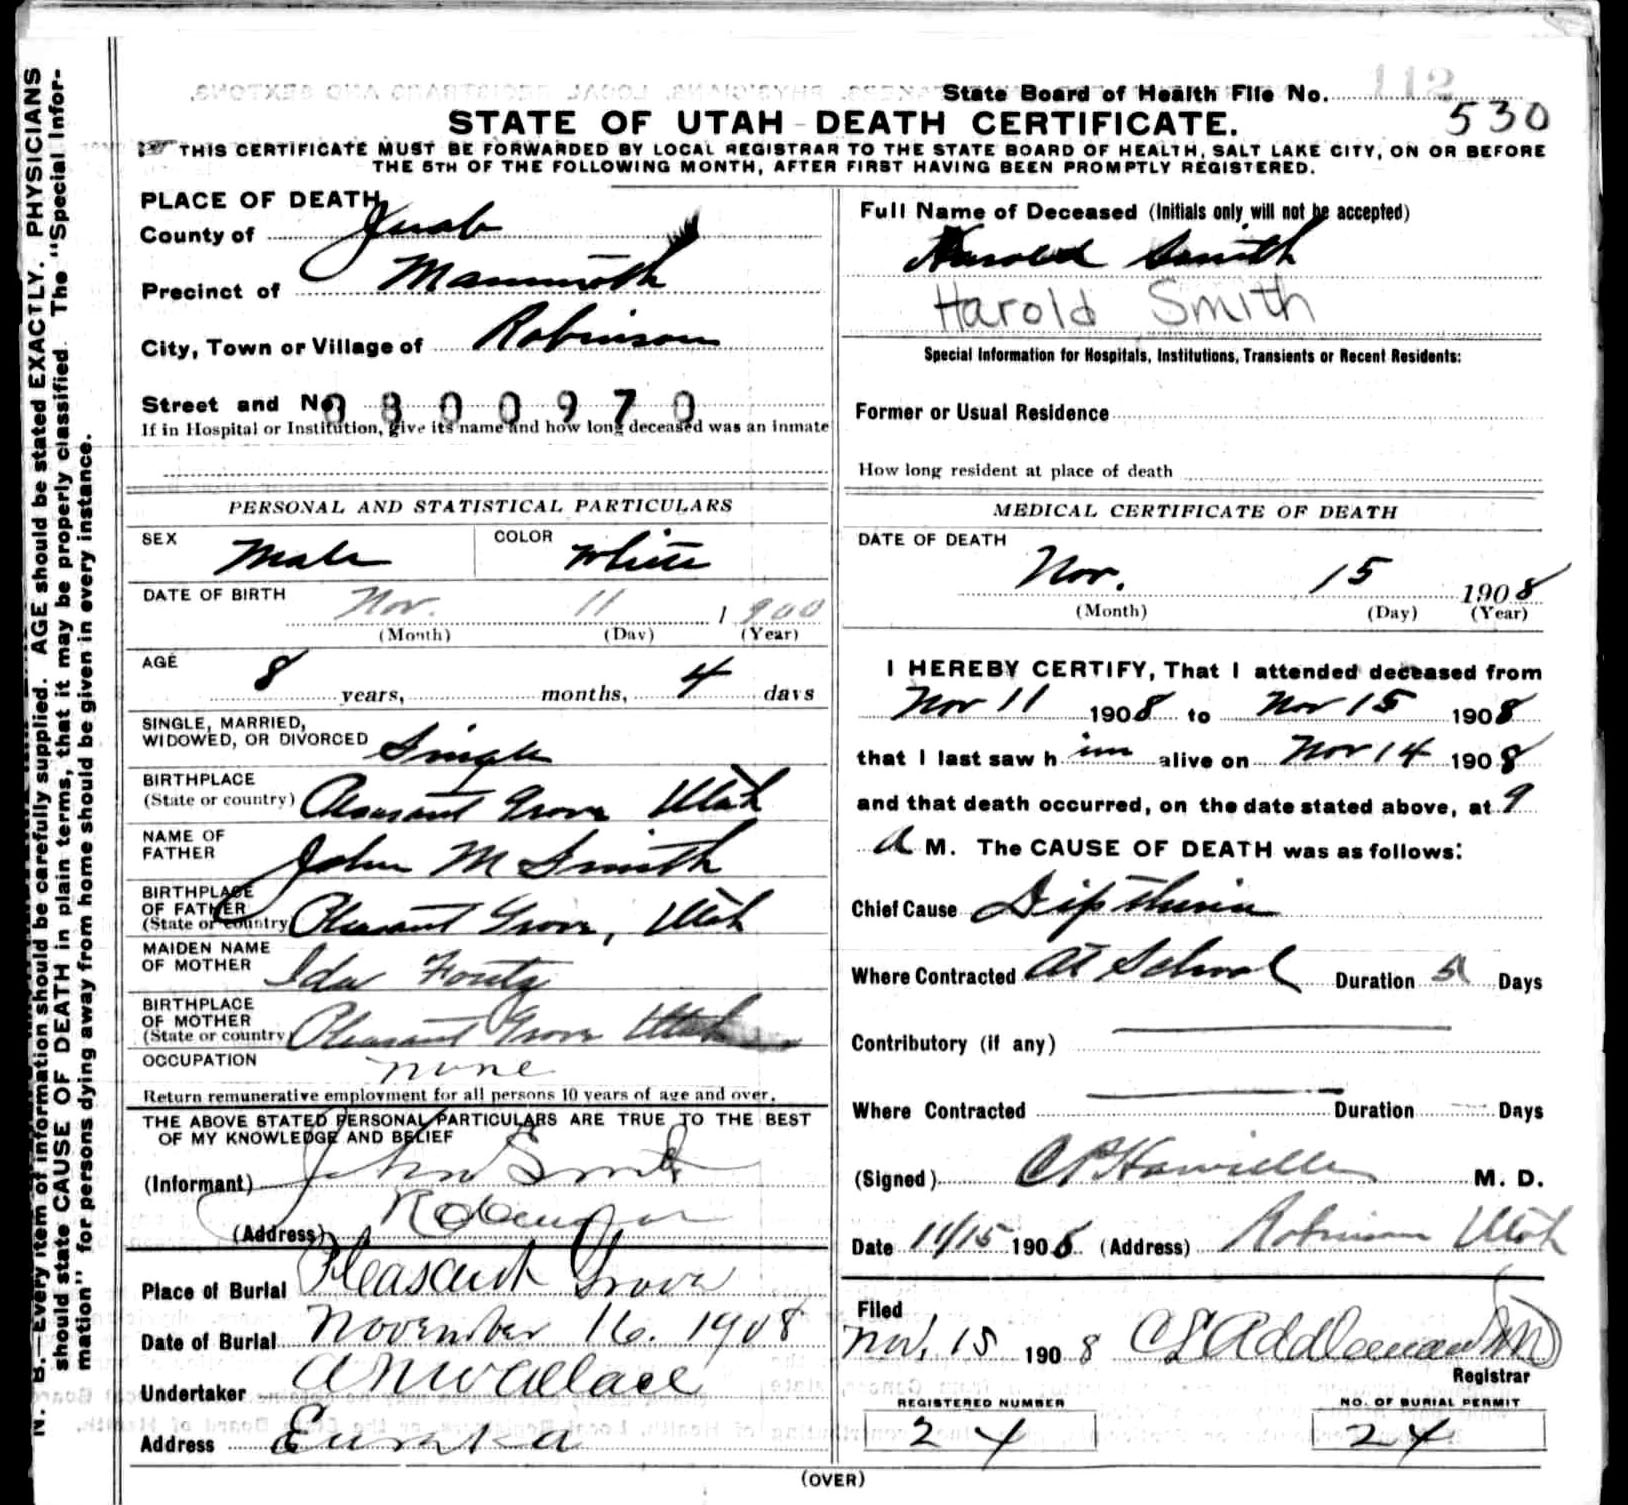 State Board of Health File No. 112
530
STATE OF UTAH - DEATH CERTIFICATE.
THIS CERTIFICATE MUST BE FORWARDED BY LOCAL REGISTRAR TO THE STATE BOARD OF HEALTH, SALT LAKE CITY, ON OR BEFORE
THE 5TH OF THE FOLLOWING MONTH, AFTER FIRST HAVING BEEN PROMPTLY REGISTERED.
N. B.—Every item of information should be carefully supplied. AGE should be stated EXACTLY. PHYSICIANS
should state CAUSE OF DEATH in plain terms, that it may be properly classified. The "Special Infor-
mation" for persons dying away from home should be given in every instance.
PLACE OF DEATH
County of Juab
Precinct of Mammoth
City, Town or Village of Robinson
Street and No. 0800970
If in Hospital or Institution, give its name and how long deceased was an inmate
PERSONAL AND STATISTICAL PARTICULARS
SEX Male COLOR White
DATE OF BIRTH Nov. 11 1900
(Month) (Day) (Year)
AGE 8 years, months, 4 days
SINGLE, MARRIED,
WIDOWED, OR DIVORCED Single
BIRTHPLACE
(State or country) Pleasant Grove Utah
NAME OF
FATHER John M Smith
BIRTHPLACE
OF FATHER
(State or country) Pleasant Grove, Utah
MAIDEN NAME
OF MOTHER Ida Foutz
BIRTHPLACE
OF MOTHER
(State or country) Pleasant Grove Utah
OCCUPATION none
Return remunerative employment for all persons 10 years of age and over.
THE ABOVE STATED PERSONAL PARTICULARS ARE TRUE TO THE BEST
OF MY KNOWLEDGE AND BELIEF
(Informant) John Smith
(Address) Robinson
Place of Burial Pleasant Grove
Date of Burial November 16. 1908
Undertaker A N Wallace
Address Eureka
Full Name of Deceased (Initials only will not be accepted)
Harold Smith
Harold Smith
Special Information for Hospitals, Institutions, Transients or Recent Residents:
Former or Usual Residence
How long resident at place of death
MEDICAL CERTIFICATE OF DEATH
DATE OF DEATH
Nov. 15 1908
(Month) (Day) (Year)
I HEREBY CERTIFY, That I attended deceased from
Nov 11 1908 to Nov 15 1908
that I last saw him alive on Nov 14 1908
and that death occurred, on the date stated above, at 9
A M. The CAUSE OF DEATH was as follows:
Chief Cause Diptheria
Where Contracted At School Duration 5 Days
Contributory (if any)
Where Contracted Duration Days
(Signed) M. D.
Date 11/15 1908 (Address) Robinson Utah
Filed
Nov. 15 1908 C L Addleman
Registrar
REGISTERED NUMBER
24
NO. OF BURIAL PERMIT
24
(OVER)